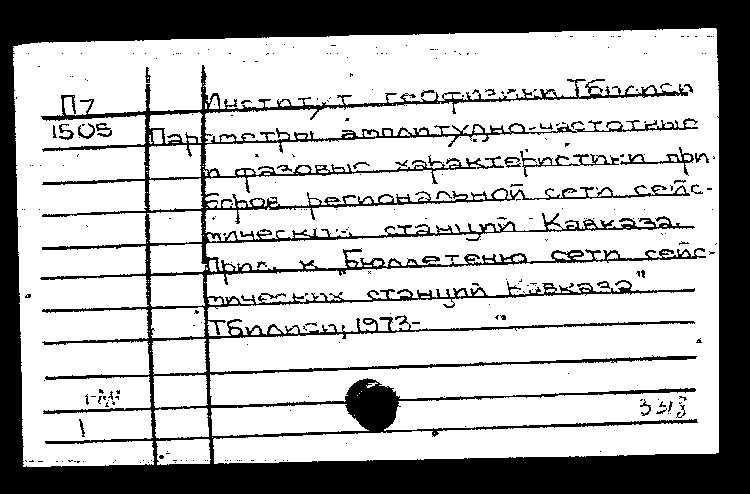 П7 Институт геофизики Тбилиси
1505 Параметры амплитудно-частотные
и фазовые характеристики при-
боров региональной сети сейс-
мических станций Кавказа.
Прил. к „Бюллетеню сети сейс-
мических станций Кавказа"
Тбилиси, 1973-
1